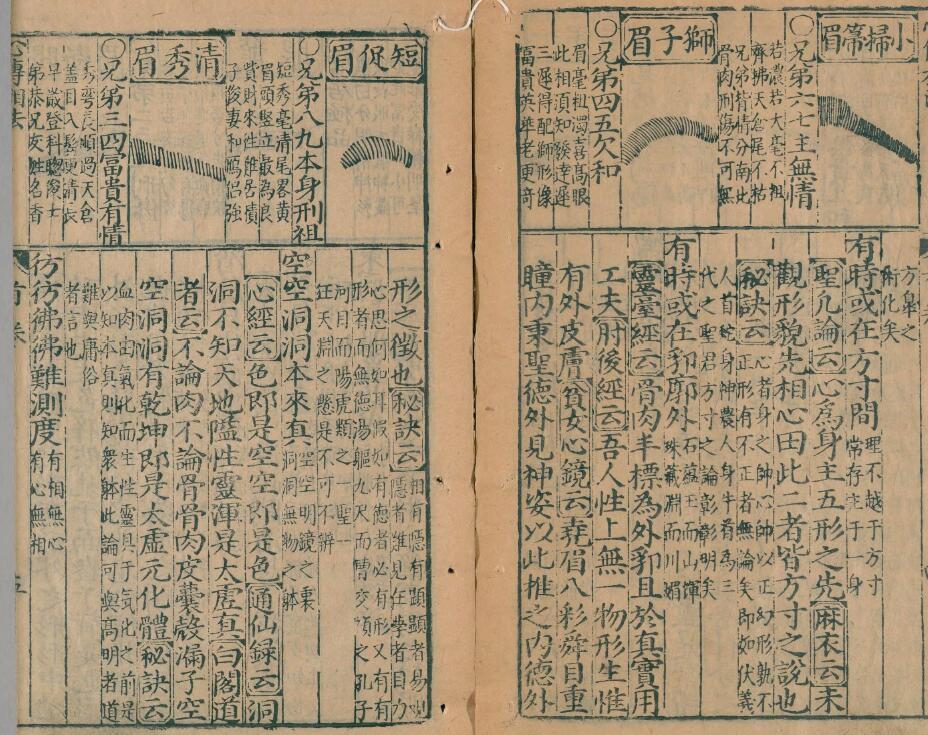 小掃箒眉
〇兄弟六七主無情
若濃若大毫不粗
齊拂天倉尾不枯
兄弟背情分南北
骨肉刑傷不可無
獅子眉
〇兄弟四五欠和
眉毫粗濁喜高眼
此相須知發達遲
三遲得配獅形像
富貴英華老更奇
方皐之
術化矣
有時或在方寸間
理不越于方寸
常存主于一身
聖凡論云心為身主五形之先麻衣云未
觀形貌先相心田此二者皆方寸之說也
秘訣云
心者身之帥心帥以正幻形孰不
正形有不正者無論矣即如伏羲
人首蛇身神農人身牛首為三
代之聖君方寸之論彰彰明矣
有時或在郛廓外
石蘊玉而山輝
珠藏淵而川媚
靈臺經云骨肉羊標為外郛且於真實用
工夫肘後經云吾人性上無一物形生惟
有外皮膚貧女心鏡云堯眉八彩舜目重
瞳內秉聖德外見神姿以此推之內德外
短促眉
〇兄弟八九本身刑祖
短秀毫清尾畧黄
眉頭竪立最為良
費財來性難居積
子俊妻和鳴侶強
清秀眉
〇兄弟三四富貴有情
秀彎長順過天倉
蓋目入鬢更清長
早歲登科聰俊士
弟恭兄友姓名香
形之徵也秘訣云
相有隱有顯顯者易明
隱者難見任學者目力
心思何如耳假如有德者必有形又有有
形者無德湯軀九尺而曹交類之孔子
河目而陽虎類之一聖一
狂天淵之懸是不可不辨
空空洞洞本來真
空空明鏡之裏
洞洞無物之躰
心經云色即是空空即是色通仙録云洞
洞不知天地隘性靈渾是太虛真白閣道
者云不論肉不論骨骨肉皮囊殼漏子空
空洞洞有乾坤即是太虛元化體秘訣云
血肉由氣化而生性靈具于氣化之前是
以知本真則知衆躰此論可與高明者道
難與庸俗
者言也
彷彷彿彿難測度
有相無心
有心無相